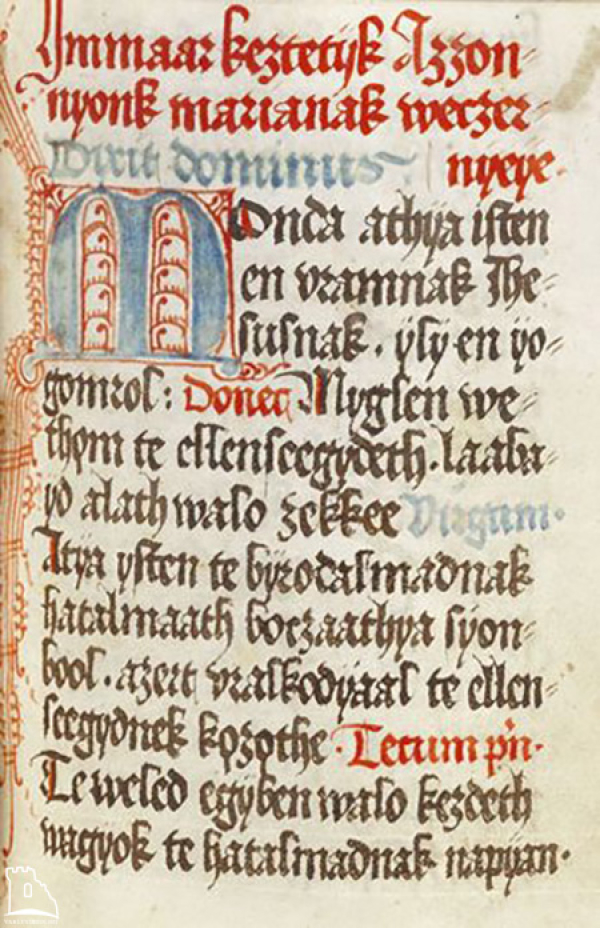 Immaar keztetijk Azzon-
nyonk marianak weczer-
Dixit dominus nyeye.
Monda athija isten
en vramnak Ihe-
susnak. ÿlÿ en yo-
gomrol: Donec Mÿglen we-
thom te ellenseegÿdeth. laaba-
ÿd alath walo zekkee Virgam.
Atÿa ÿsten te bÿrodalmadnak
hatalmaath boczaathÿa sÿon-
bool. azert vraskodÿaal te ellen-
seegÿdnek kozothe. Tecum pn.
Te weled egÿben walo kezdeth
wagÿok te hatalmadnak napÿan.